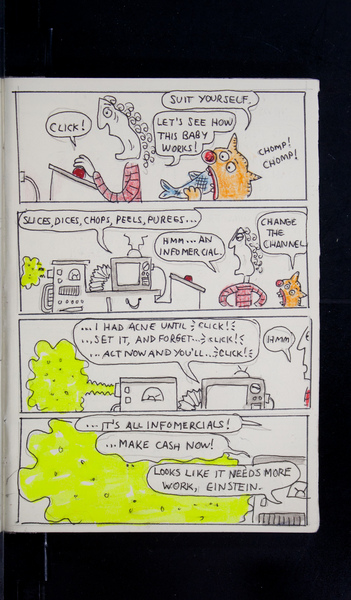 SUIT YOURSELF.
CLICK!
LET'S SEE HOW
THIS BABY
WORKS!
CHOMP!
CHOMP!
SLICES, DICES, CHOPS, PEELS, PUREES...
HMM... AN
INFOMERCIAL.
CHANGE
THE
CHANNEL.
...I HAD ACNE UNTIL CLICK!
...SET IT, AND FORGET... CLICK!
...ACT NOW AND YOU'LL... CLICK!
HMM
...IT'S ALL INFOMERCIALS!
...MAKE CASH NOW!
LOOKS LIKE IT NEEDS MORE
WORK, EINSTEIN.